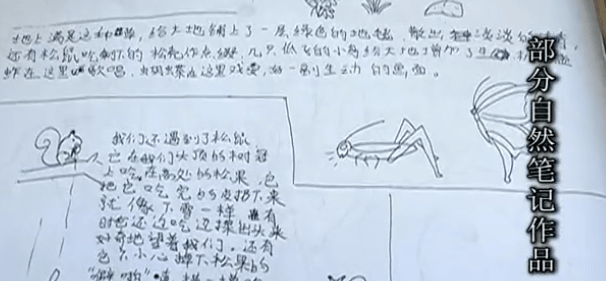 地上满是这种草，给大地铺上了一层绿色的地毯，散出淡淡
还有松鼠吃剩下的松壳作点缀，几只低飞的小鸟给大地增加了生
蚱在这里歌唱，蝴蝶在这里戏耍，好一副生动的画面。
我们还遇到了松鼠
它在我们头顶的树冠
上吃在高处的松果，它
把它吃完的皮扔下来
就像下雪一样，有
时它还边吃边探出头来
好奇地望着我们。还有
它不小心掉下松果的
部分自然笔记作品